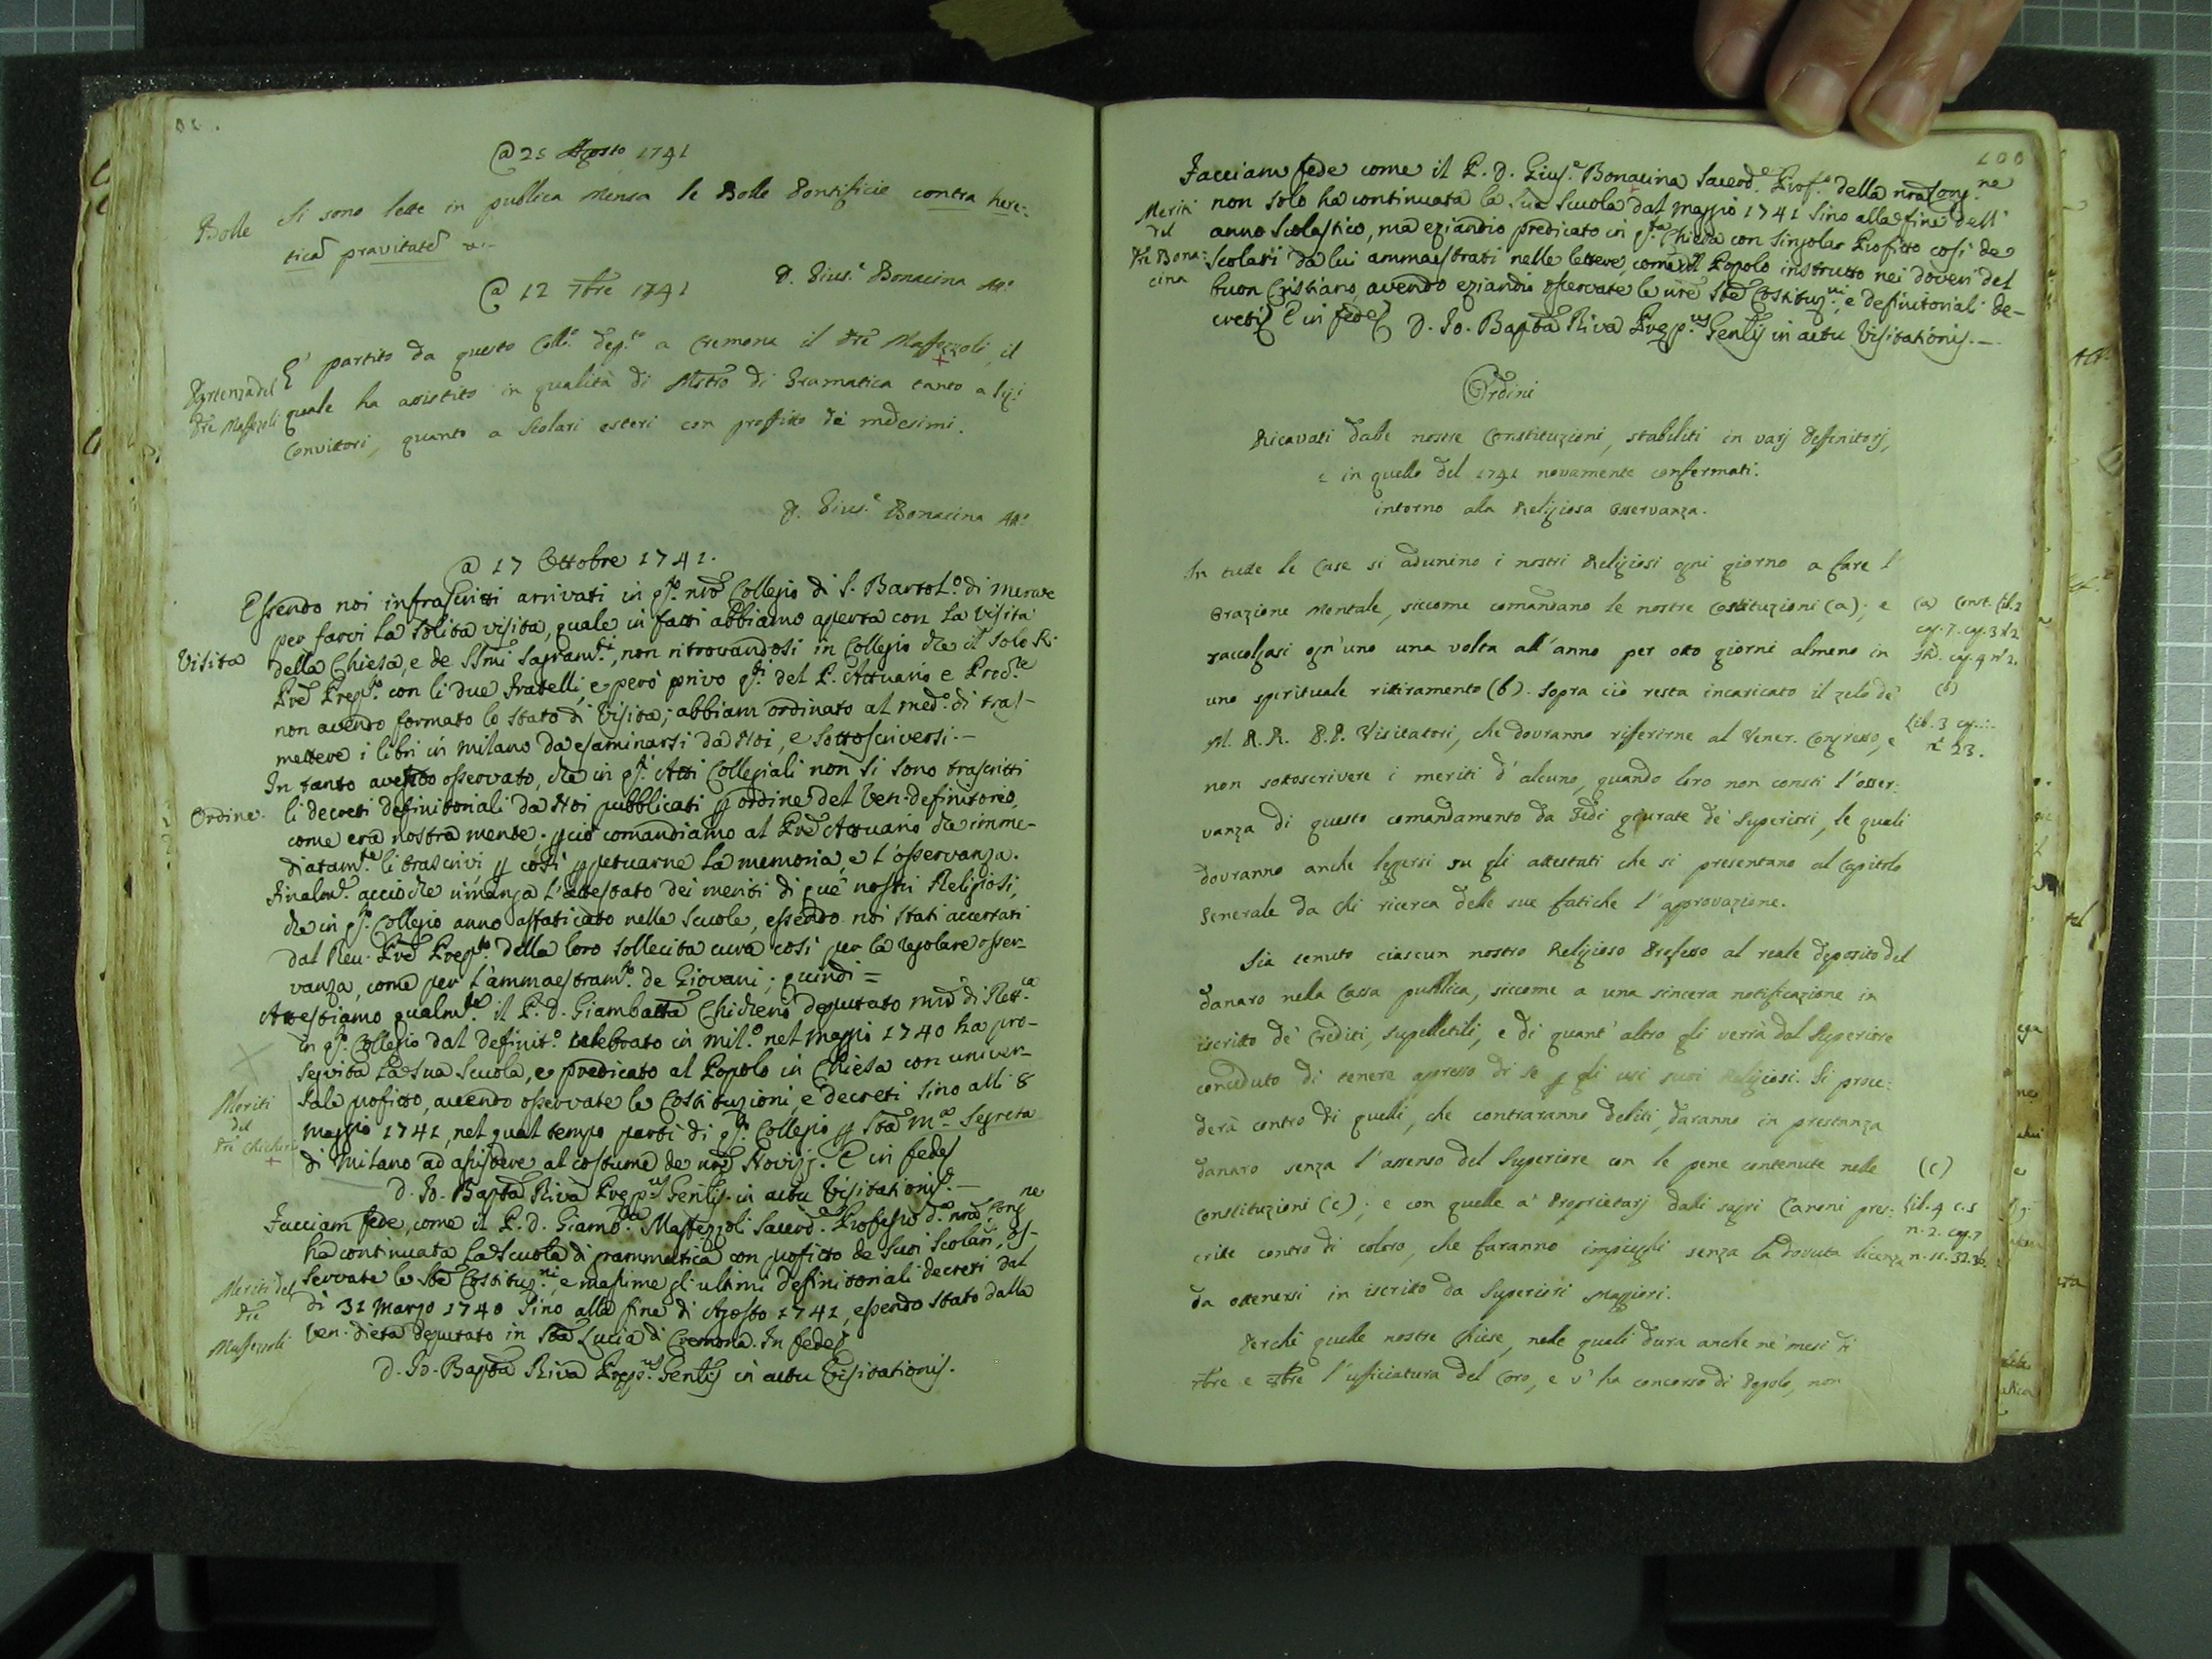 @ 25 Agosto 1741
Bolle
Si sono lette in publica Mensa le Bolle Pontificie contra here:
ticā pravitatē
D. Gius.e Bonacina Att.o
@ 12 7bre 1741
Partenza del
Pre Maffezzoli
E' partito da questo Coll.o dep.to a Cremona il Pre Maffezzoli, il
quale ha assistito in qualità di Mstro di Gramatica tanto a Sig.i
Convittori, quanto a Scolari esteri con profitto de medesimi.
D. Gius.e Bonacina Att.o
@ 17 Ottobre 1741.
Visita
Essendo noi infrascritti arrivati in q.to nrō Collegio di S. Bartol.o di Merate
per farvi la solita visita, quale in fatti abbiamo aperta con la visita
della Chiesa, e de SSmi Sagram.ti, non ritrovandosi in Collegio che il solo R.
Prē Prep.to con li due Fratelli, e però privo del P. Attuario e Proc.re
non avendo formato lo stato di Visita; abbiam ordinato al med.o di tras-
mettere i libri in Milano da esaminarsi da Noi, e sottoscriversi.
Ordine.
In tanto avendo osservato, che in q.ti Atti Collegiali non si sono trascritti
li decreti definitoriali da Noi pubblicati p ordine del Ven. definitorio,
come era nostra mente. p ciò comandiamo al Prē Attuario che imme-
diatam.te li trascrivi p così ppetuarne la memoria, e l'osservanza.
Finalm.e acciò che rimanga l'attestato dei meriti di que' nostri Religiosi,
che in q.to Collegio anno affaticato nelle Scuole, essendo noi stati accertati
dal Rev. Prē Prep.to della loro sollecita cura così per la regolare osser-
vanza, come per l'ammaestram.to de Giovani; quindi =
Meriti
del
Pre Chicheri
Attestiamo qualm.te il P. D. Giambatta Chicheri deputato mrō di Rett.ca
in q.to Collegio dal definit.o celebrato in Mil.o nel Maggio 1740 ha pro-
seguita la sua Scuola, e predicato al Popolo in Chiesa con univer-
sale profitto, avendo osservate le Costituzioni, e decreti sino alli 8
Maggio 1741, nel qual tempo partì di q.to Collegio p Sta M.a Segreta
di Milano ad assistere al costume de nrī Novizj. E in fede
D. Io. Bapta Riva Prep.us Gen̄lis in actu Visitationis.
Meriti del
Pre
Maffezzoli
Facciam fede, come il P. D. Giamb.ta Maffezzoli Sacerd.e Professo d.a nrā Cong.ne
ha continuata la Scuola di grammatica con profitto de suoi Scolari, os-
servate le Ste Costituz.ni, e massime gl'ultimi definitoriali decreti dal
dì 31 Marzo 1740 sino alla fine di Agosto 1741, essendo stato dalla
Ven. dieta deputato in Sta Lucia di Cremona. In fede
D. Io. Bapta Riva Prep.us Gen̄lis in actu Visitationis.
100
Meriti
del
Pre Bona:
cina
Facciam fede come il P. D. Gius.e Bonacina Sacerd.e Prof.o della nrā Cong.ne
non solo ha continuata la sua Scuola dal Maggio 1741 sino alla fine dell'
anno Scolastico, ma eziandio predicato in q.ta Chiesa con singolar profitto così de
Scolari da lui ammaestrati nelle lettere, come del Popolo instrutto nei doveri del
buon Cristiano, avendo eziandio osservate le nrē Ste Costituz.ni, e definitoriali de-
creti. E in fede D. Io. Bapta Riva Prep.us Gen̄lis in actu Visitationis.
Ordini
Ricavati dalle nostre Constituzioni, stabiliti in varj Deffinitorj,
e in quello del 1741 novamente confermati.
intorno alla Religiosa Osservanza.
In tutte le Case si adunino i nostri Religiosi ogni giorno a fare l'
Orazione Mentale, siccome comandano le nostre Costituzioni (a); e
(a) Const. lib. 2
cap. 7. cap. 3 n. 2
cap. 4 n. 2.
raccolgasi ogn'uno una volta all'anno per otto giorni almeno in
uno spirituale ritiramento (b). Sopra ciò resta incaricato il zelo de'
(b)
Lib. 3 cap.
n. 23.
M. R. R. P.P. Visitatori, che dovranno riferirne al Vener. Congresso, e
non sottoscrivere i meriti d'alcuno, quando loro non consti l'osser:
vanza di questo comandamento da Fedi giurate de' Superiori, le quali
dovranno anche leggersi su gli attestati che si presentano al Capitolo
Generale da chi ricerca delle sue fatiche l'approvazione.
Sia tenuto ciascun nostro Religioso Professo al reale deposito del
danaro nella Cassa publica, siccome a una sincera notificazione in
iscritto de' Crediti, supelletili, e di quant'altro gli verrà dal Superiore
conceduto di tenere apresso di se p gli usi suoi Religiosi. Si proce:
derà contro di quelli, che contraranno debiti, daranno in prestanza
danaro senza l'assenso del Superiore con le pene contenute nelle
(c)
Lib. 4 c. 5
n. 2. cap. 7
n. 11. 32. 36
Constituzioni (c); e con quelle a' Proprietarj dalli sagri Canoni pres:
critte contro di coloro, che faranno impieghi senza la dovuta licenza
da ottenersi in iscritto da Superiori Maggiori.
Perchè quelle nostre Chiese, nelle quali dura anche ne' mesi di
7bre e 8bre l'ufficiatura del Coro, e v'ha concorso di Popolo, non